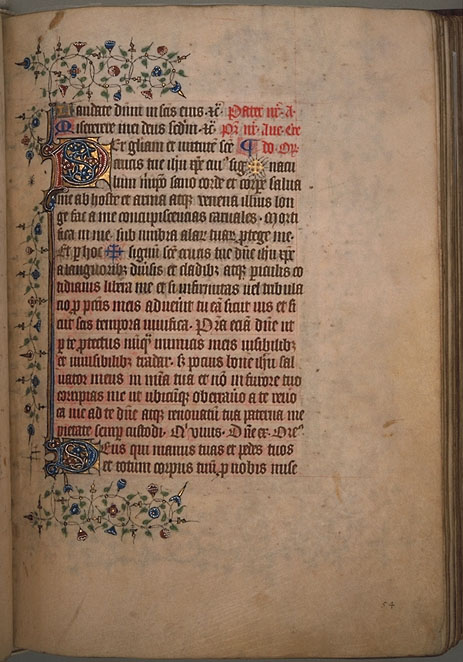 Laudate dnm in scis eius. xc. Pater nr. A.
Miserere mei deus scdm. xc. Pr nr. Aue. Cre
Et gliam et uirtute sce do. Or.
crucis tue ihu xpe cui sig nacu
lum impro sano corde et corpe salua
me ab hoste et arma atq venena illius lon
ge fac a me concupiscencias carnales. morti
fica in me. sub umbra alar tuar protege me.
Et p hoc signu sce crucis tue dne ihu xpe
a languoribz diuersis et cladibz atq piculis co
tidianis libera me et si infirmitas uel tribula
cio p pctis meis aduenit tu ea sicut uis et si
cut scis tempora miuifica. Pra ecia dne ut
p te protectus nuq inimicis meis uisibilibz
et inuisibilibz tradar. s pocius bone ihu sal
uator meus in mia tua et no in furore tuo
corripias me ut ubicuq oberrauero a te reuo
ca me ad te dne atq renouatum tua paterna me
pietate semp custodi. Qi viuis. Dne ex. Ore
Deus qui manus tuas et pedes tuos
et totum corpus tuu p nobis mise
54